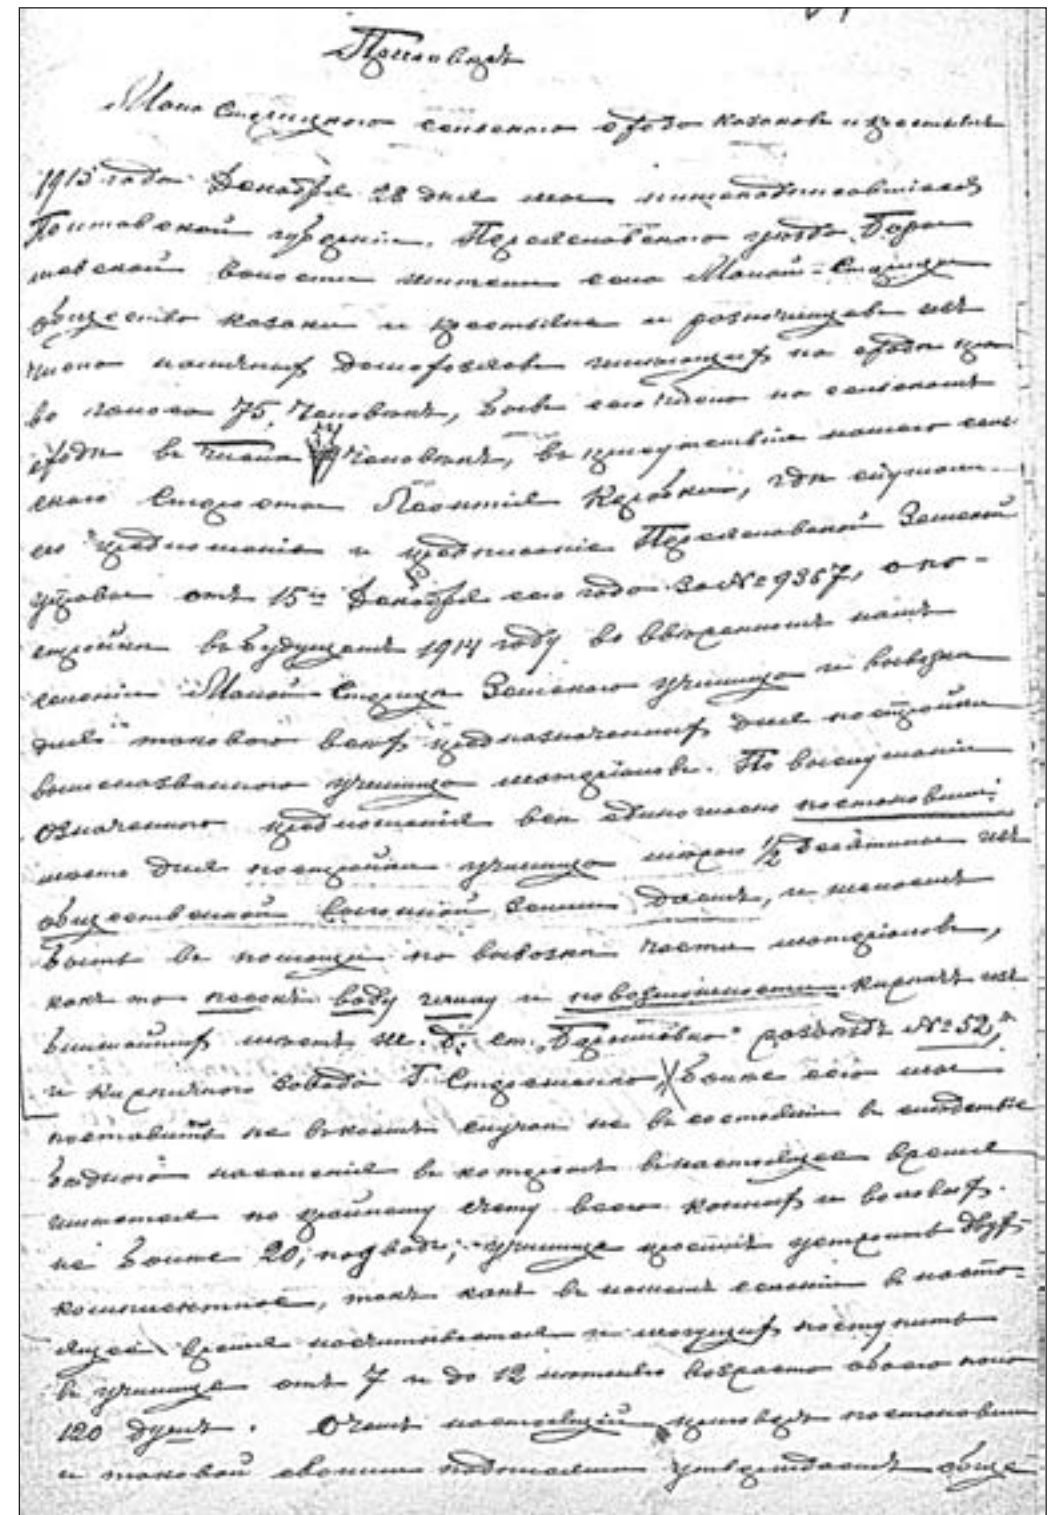 Приговоръ
Мало Старицкого сельского схода козаковъ и крестьянъ
1913 года Декабря 28 дня мы нижеподписавшіеся
Полтавской губерніи, Переяславского уѣзда, Бори
общество козаки и крестьяне и разночинцевъ изъ
числа наличныхъ домохозяевъ имѣющихъ на сходѣ пра
во голоса 75, человѣкъ, бывъ сего числа на сельскомъ
сходѣ въ числѣ человѣкъ, въ присутствіи нашего сель
скаго Старосты Леонтія Коробки, гдѣ слушали
предложеніе и предписаніе Переяславской Земской
управы отъ 15го Декабря сего года за № 9367, о по-
стройкѣ въ будущемъ 1914 году во ввѣренномъ намъ
селеніи Малой Старицѣ Земского училища и вывозки
для таковаго всѣхъ предназначенныхъ для постройки
вышеназваннаго училища матеріаловъ. По выслушаніи
означеннаго предложенія всѣ единогласно постановили:
мѣсто для постройки училища мѣрою 1/2 десятины изъ
общественной земли даемъ, и желаемъ
быть въ помощи по вывозкѣ части матеріаловъ,
какъ то песокъ воду глину и повозможности кирпичъ изъ
ближайшихъ мѣстъ ж. д. ст. „Барышовка“ разъѣздъ № 52,
и кирпичного завода Г. Стороженко болѣе сего мы
поставить не въ коемъ случаѣ не въ состояніи въ слѣдствіе
бѣдного населенія въ которомъ въ настоящее время
имѣется по крайнему счету всего конныхъ и воловыхъ
не болѣе 20, подводъ; училище просимъ устроить двух-
комплектное, такъ какъ въ нашемъ селеніи въ насто-
ящее время насчитывается и могущихъ поступить
въ училище отъ 7 и до 12 лѣтняго возраста обоего пола
120 душъ. О чемъ настоящій приговоръ постановили
и таковой своими подписями утверждаемъ обще